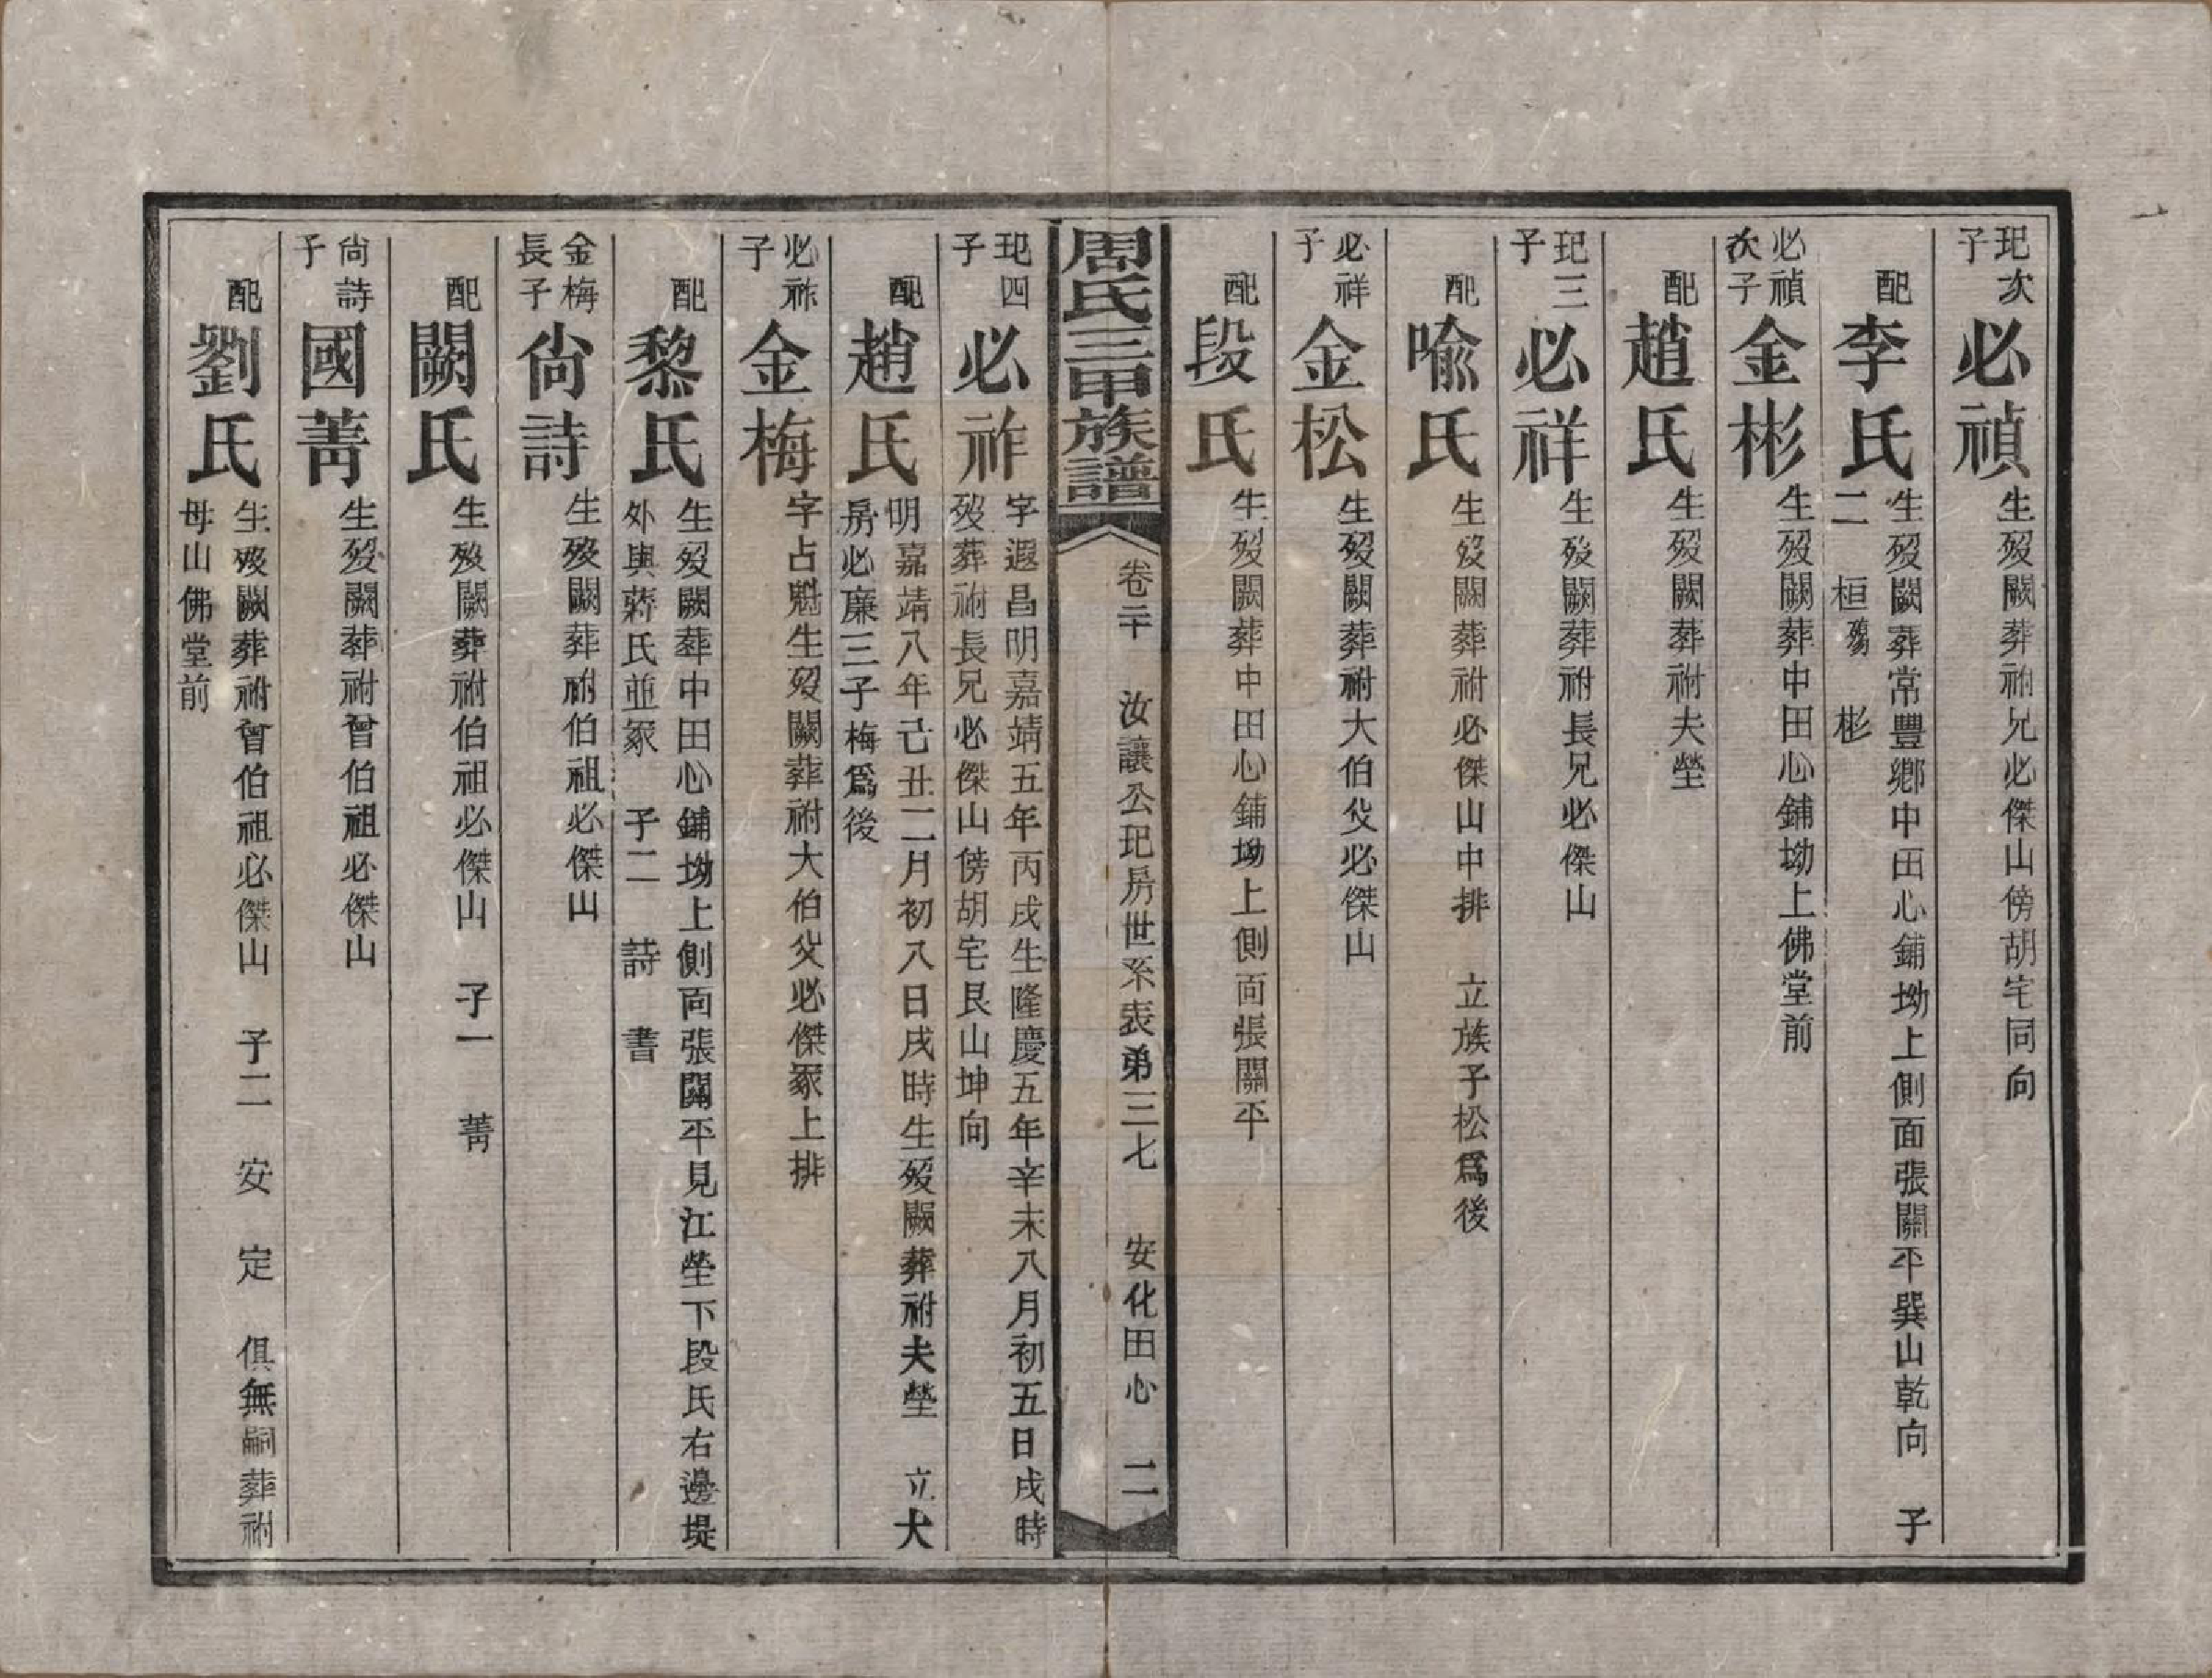 玘次子
必禎
生歿闕葬祔兄必傑山傍胡宅同向
配
李氏
生歿闕葬常豐鄉中田心鋪坳上側面張關平巽山乾向 子
二 桓殤 彬
必禎次子
金彬
生歿闕葬中田心鋪坳上佛堂前
配
趙氏
生歿闕葬祔夫塋
玘三子
必祥
生歿闕葬祔長兄必傑山
配
喩氏
生歿闕葬祔必傑山中排 立族子松爲後
必祥子
金松
生歿闕葬祔大伯父必傑山
配
段氏
生歿闕葬中田心鋪坳上側面張關平
周氏三甲族譜
卷二十 汝讓公玘房世系表弟三七 安化田心 二
玘四子
必祚
字遐昌明嘉靖五年丙戌生隆慶五年辛未八月初五日戌時
歿葬祔長兄必傑山傍胡宅艮山坤向
配
趙氏
明嘉靖八年己丑二月初八日戌時生歿闕葬祔夫塋 立大
房必廉三子梅爲後
必祚子
金梅
字占魁生歿闕葬祔大伯父必傑冢上排
配
黎氏
生歿闕葬中田心鋪坳上側面張關平見江塋下段氏右邊堤
外與蔣氏並冢 子二 詩 書
金梅長子
尙詩
生歿闕葬祔伯祖必傑山
配
闕氏
生歿闕葬祔伯祖必傑山 子一 菁
尙詩子
國菁
生歿闕葬祔曾伯祖必傑山
配
劉氏
生歿闕葬祔曾伯祖必傑山 子二 安 定 俱無嗣葬祔
母山佛堂前